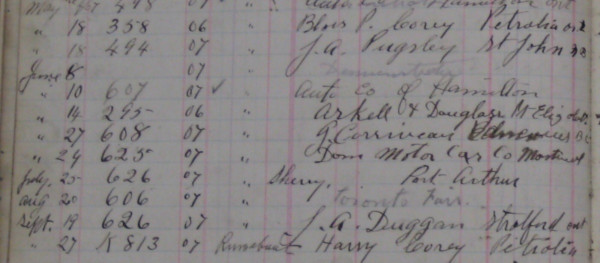 May 498 07 " Auto Hamilton ont
" 18 358 06 " Blois P. Corey Petrolia ont
" 18 494 07 " J.A. Pugsley St John NB
June 8 07 "
" 10 607 07 ✓ Auto Co of Hamilton
" 14 295 06 " Arkell & Douglas Pt Eliz
" 27 608 07 " Corriveau
" 24 625 07 " Dom Motor Car Co Montreal
July. 25 626 07 " Sherry. Port Arthur
Aug 20 606 07 " Toronto Fair.
Sept. 19 626 07 " J.A. Duggan Stratford ont
" 27 K 813 07 Runabout Harry Corey Petrolia